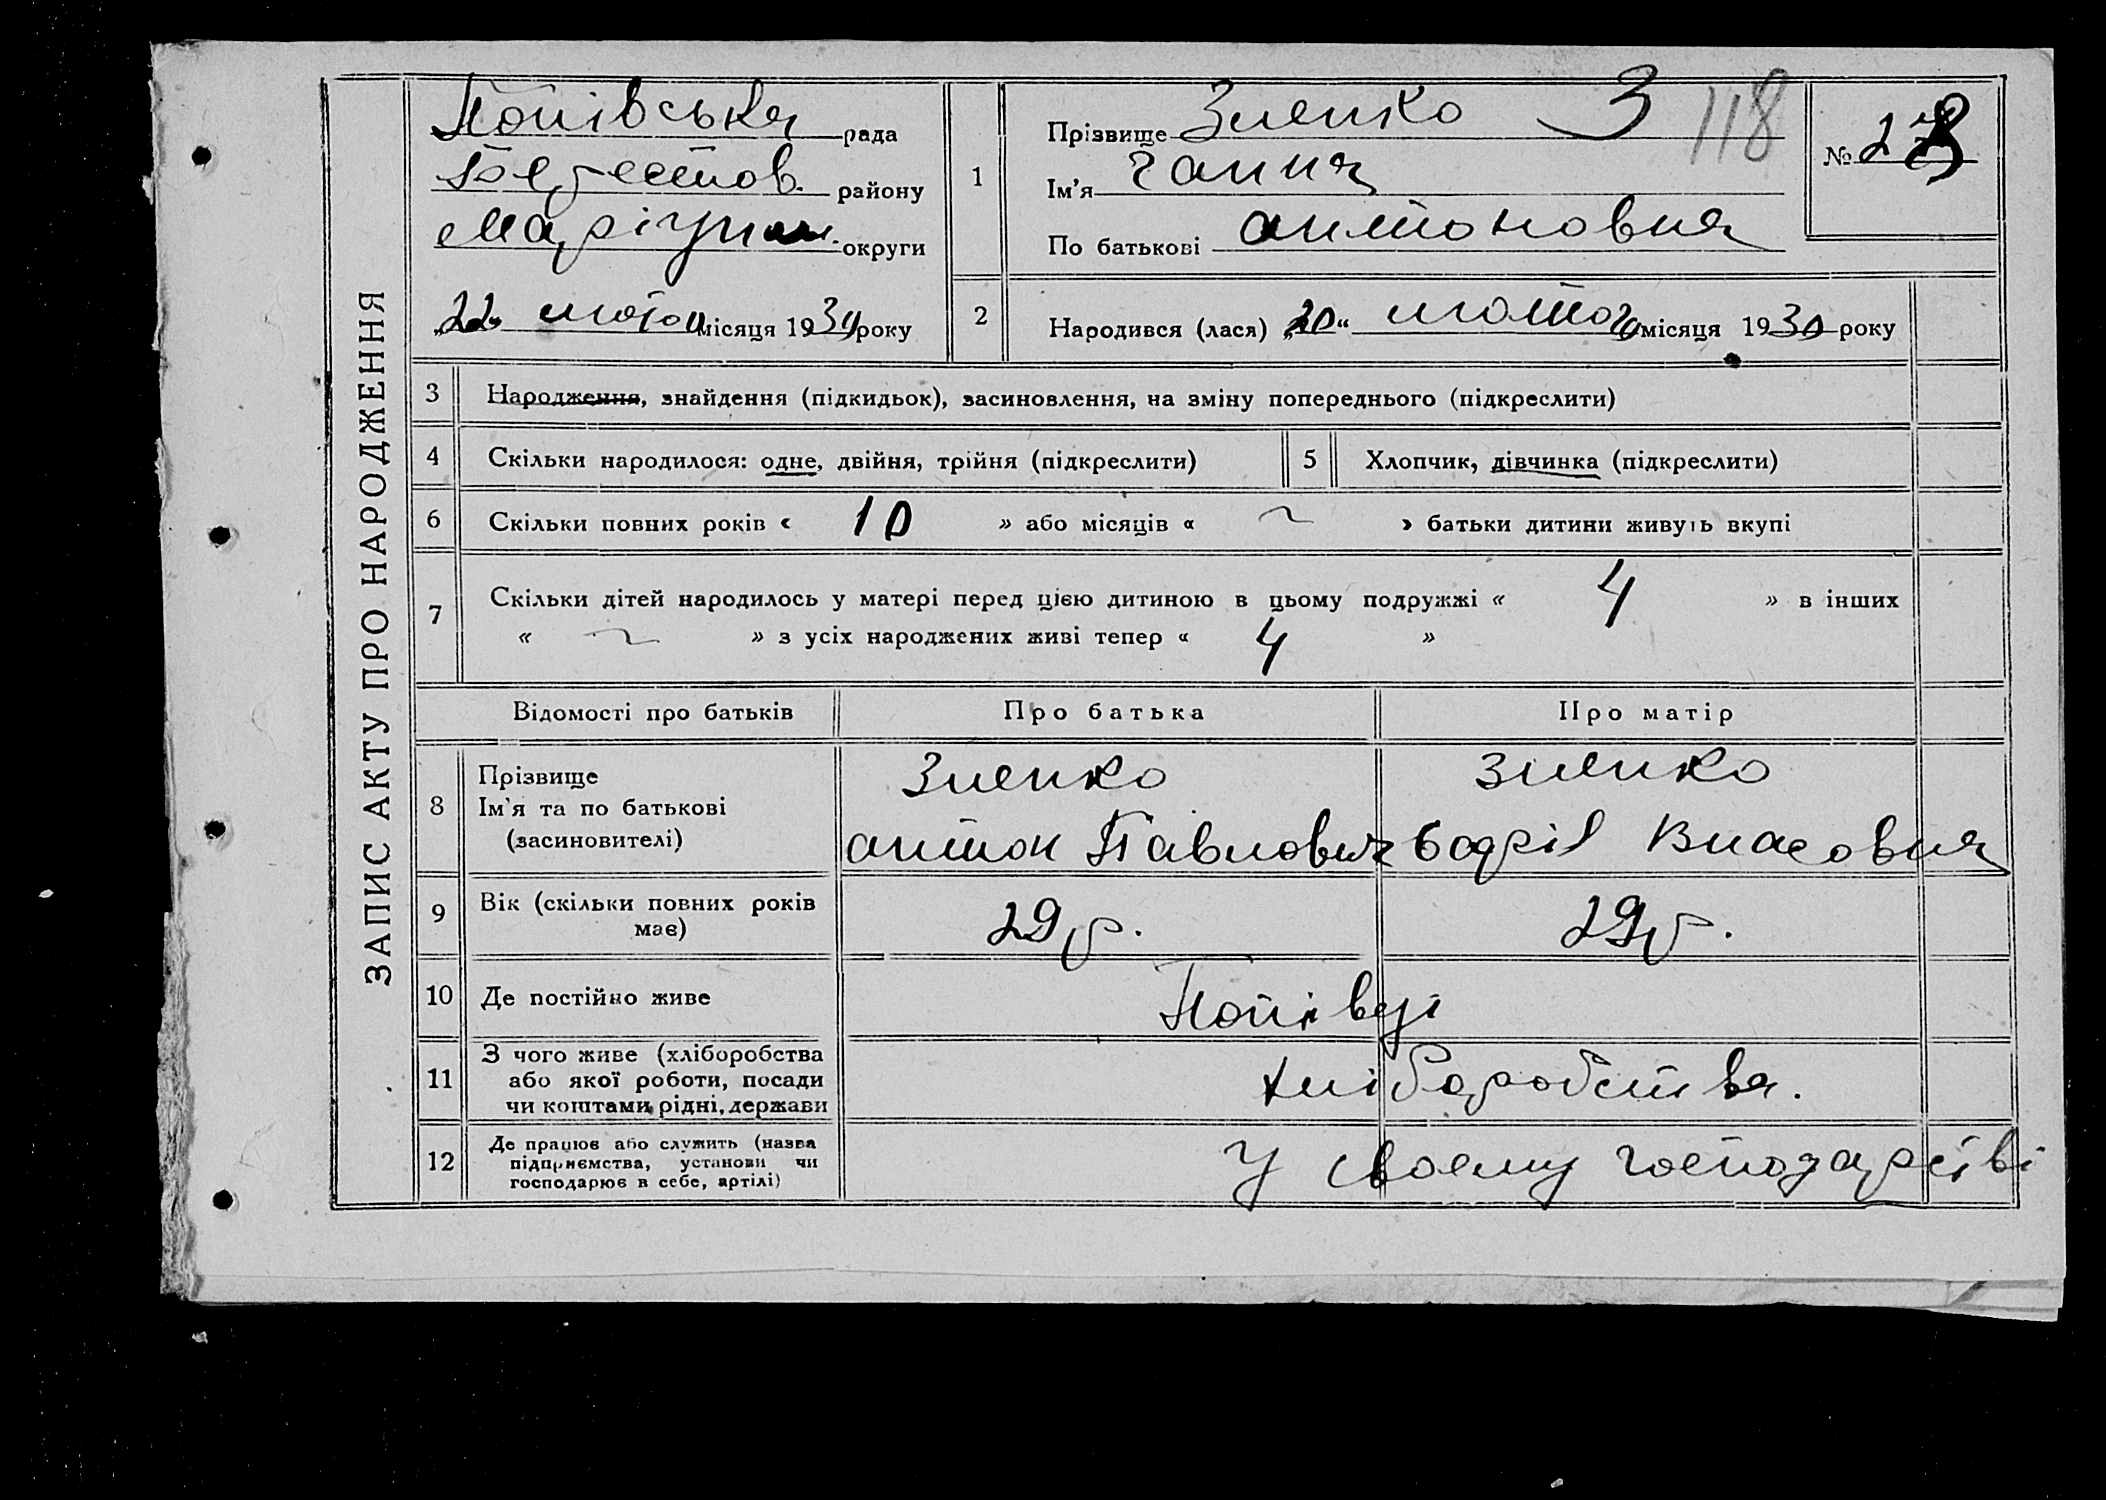 ЗАПИС АКТУ ПРО НАРОДЖЕННЯ
Попівська рада
району
Маріуп. округи
"22" лютого місяця 1930 року
1
Прізвище Зленко З 118
Ім'я Ганна
По батькові Антоновна
№ 28
2
Народився (лася) "20" лютого місяця 1930 року
3 Народження, знайдення (підкидьок), засиновлення, на зміну попереднього (підкреслити)
4 Скільки народилося: одне, двійня, трійня (підкреслити)
5 Хлопчик, дівчинка (підкреслити)
6 Скільки повних років « 10 » або місяців « ~ » батьки дитини живуть вкупі
7 Скільки дітей народилось у матері перед цією дитиною в цьому подружжі « 4 » в інших
« ~ » з усіх народжених живі тепер « 4 »
Відомості про батьків Про батька Про матір
8 Прізвище Зленко Зленко
Ім'я та по батькові
(засиновителі) Антон Павлович Власовна
9 Вік (скільки повних років 29 р. 29 р.
має)
10 Де постійно живе Попівці
11 З чого живе (хліборобства
або якої роботи, посади хліборобства.
чи коштами рідні, держави
12 Де працює або служить (назва
підприємства, установи чи у своему господарстві
господарює в себе, артілі)